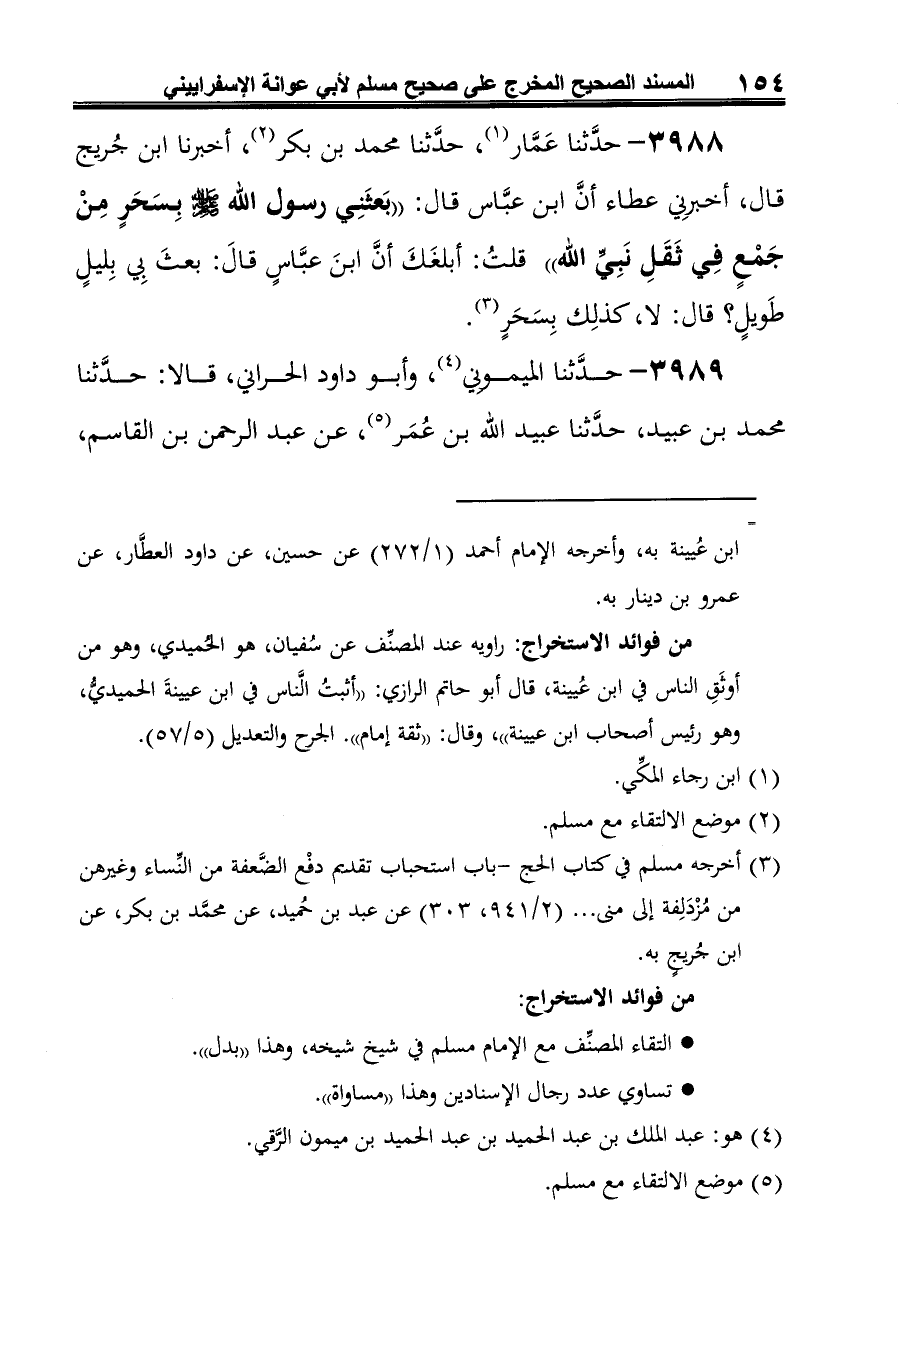 ١٥٤ المسند الصحيح المخرج على صحيح مسلم لأبي عوانة الإسفراييني
٣٩٨٨- حدَّثنا عَمَّار(١)، حدَّثنا محمد بن بكر(٢)، أخبرنا ابن جُريج
قال، أخبرني عطاء أنَّ ابن عبَّاس قال: ((بَعثَنِي رسول الله ﷺ بِسَحَرٍ مِنْ
جَمْعٍ فِي ثَقَلِ نَبِيِّ الله)) قلتُ: أبلغَكَ أنَّ ابنَ عبَّاسٍ قالَ: بعثَ بِي بِليلٍ
طَويلٍ؟ قال: لا، كذلِك بِسَحَرٍ(٣).
٣٩٨٩- حدَّثنا الميموني(٤)، وأبو داود الحراني، قالا: حدَّثنا
محمد بن عبيد، حدَّثنا عبيد الله بن عُمَر(٥)، عن عبد الرحمن بن القاسم،
=
ابن عُيينة به، وأخرجه الإمام أحمد (٢٧٢/١) عن حسين، عن داود العطَّار، عن
عمرو بن دينار به.
من فوائد الاستخراج: راويه عند المصنِّف عن سُفيان، هو الحُميدي، وهو من
أوثَقِ الناس في ابن عُيينة، قال أبو حاتم الرازي: ((أثبتُ الَّناس في ابن عيينةَ الحميديُّ،
وهو رئيس أصحاب ابن عيينة))، وقال: ((ثقة إمام)). الجرح والتعديل (٥٧/٥).
(١) ابن رجاء المكِّي.
(٢) موضع الالتقاء مع مسلم.
(٣) أخرجه مسلم في كتاب الحج -باب استحباب تقديم دفْع الضَّعفة من النِّساء وغيرهن
من مُزْدَلِفة إلى منى... (٩٤١/٢، ٣٠٣) عن عبد بن حُميد، عن محمَّد بن بكر، عن
ابن جُريجٍ به.
من فوائد الاستخراج:
● التقاء المصنِّف مع الإمام مسلم في شيخ شيخه، وهذا ((بدل)).
● تساوي عدد رجال الإسنادين وهذا ((مساواة)).
(٤) هو: عبد الملك بن عبد الحميد بن عبد الحميد بن ميمون الرَّقي.
(٥) موضع الالتقاء مع مسلم.